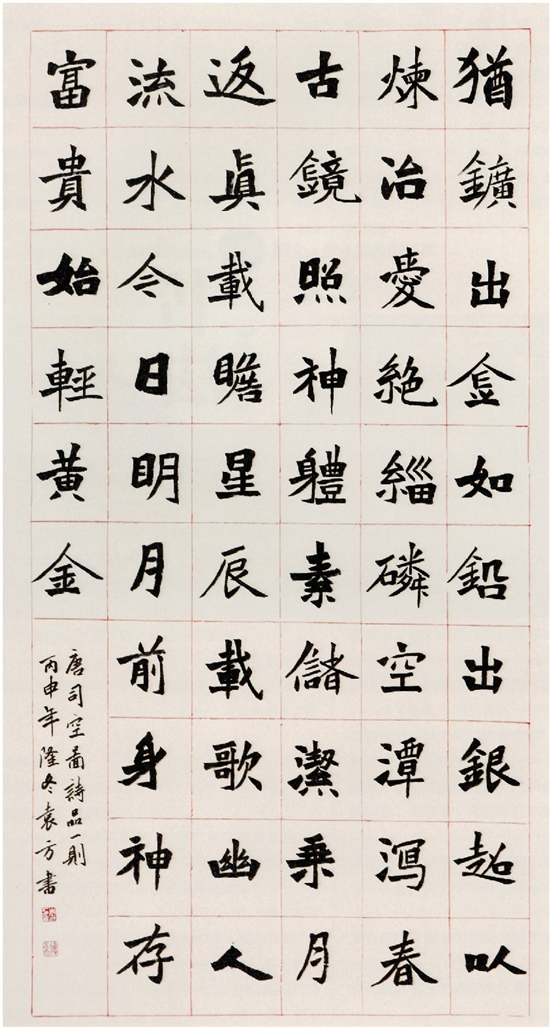 猶鑛出金如鉛出銀超以
煉冶愛絕緇磷空潭瀉春
古鏡照神軆素儲潔乘月
返眞載瞻星辰載歌幽人
流水今日明月前身神存
富貴始輕黃金
唐司空圖詩品一則
丙申年隆冬袁方書